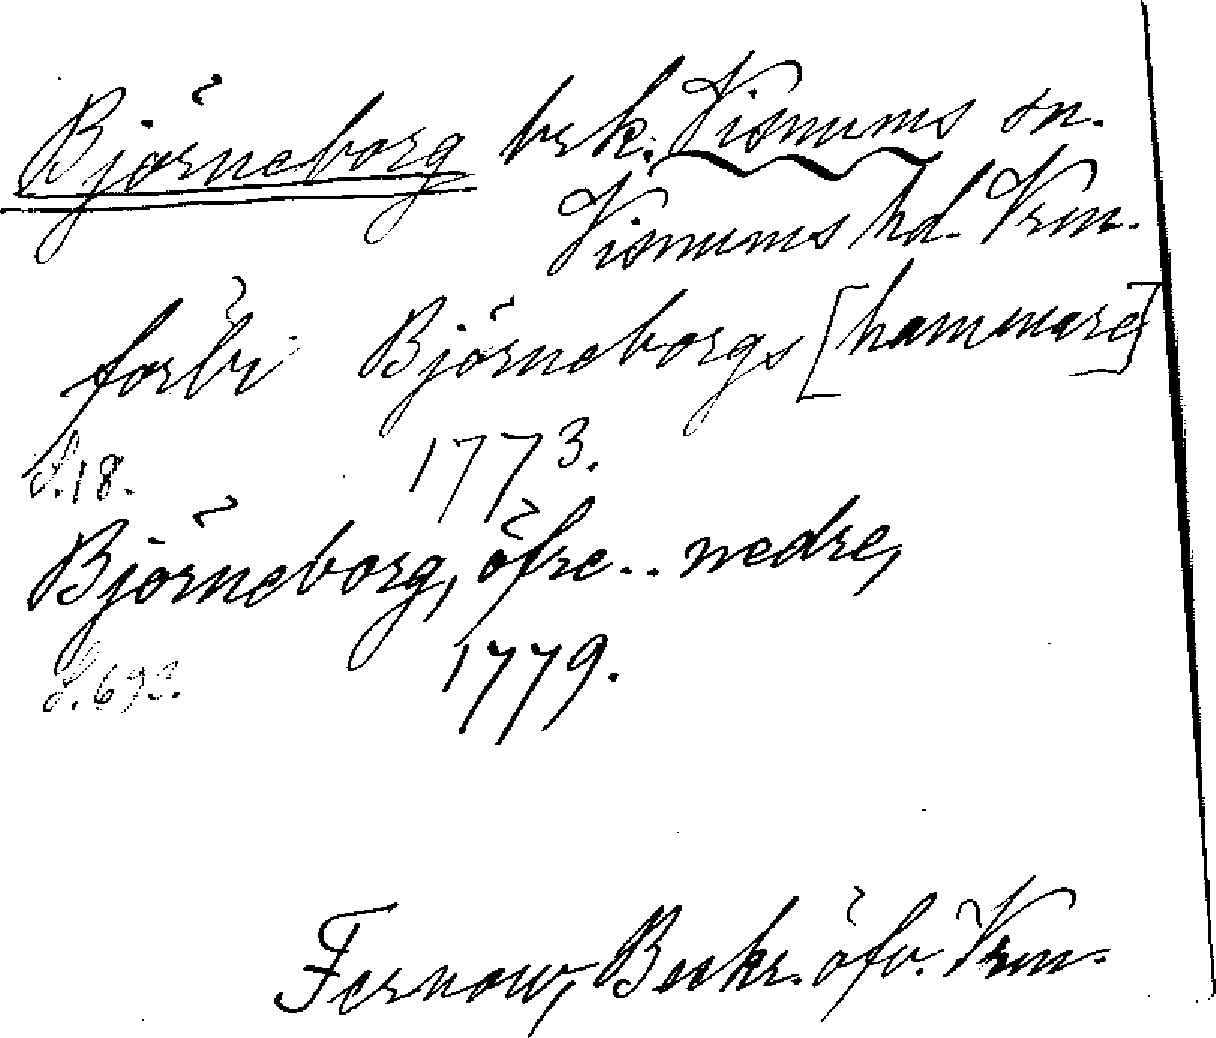 Björneborg brk. Visnums sn.
Visnums hd. Vrm.
förbi Björneborgs [hammare]
S.18. 1773.
Björneborg, öfre.. nedre,
S.693. 1779.
Fernow, Beskr. öfv. Vrm.